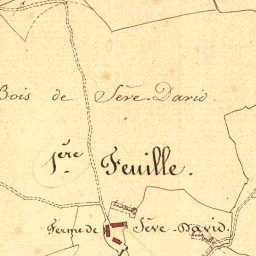 Bois de Sère-David.
1ère Feuille.
Ferme de Sère-David.